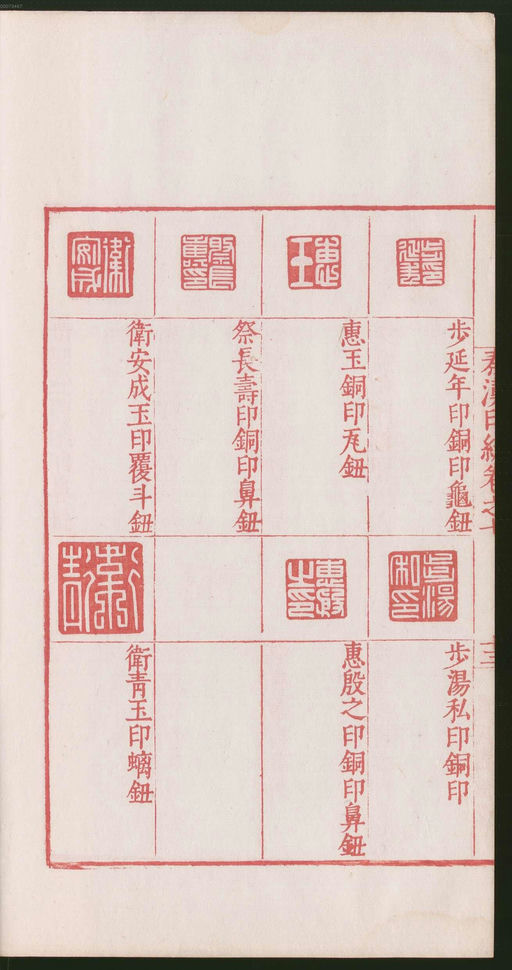 步延年印銅印龜鈕
步湯私印銅印
惠玉銅印瓦鈕
惠殷之印銅印鼻鈕
祭長壽印銅印鼻鈕
衛安成玉印覆斗鈕
衛青玉印螭鈕